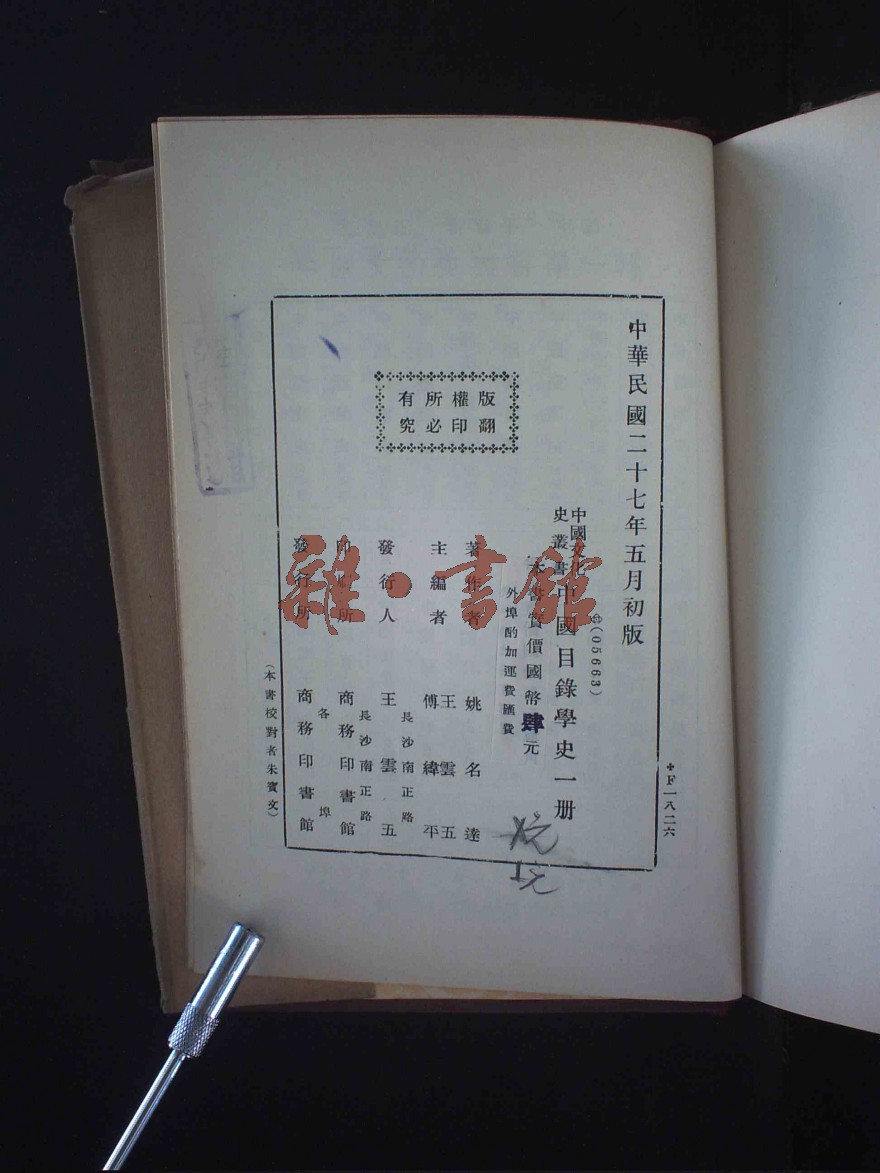 中華民國二十七年五月初版
(05663)
中國文化史叢書 中國目錄學史一册
本書實價國幣肆元
外埠酌加運費匯費
著作者 姚名達
主編者 王雲五 傅緯平
發行人 王雲五
長沙南正路
印刷所 商務印書館
長沙南正路
發行所 商務印書館
各埠
版權所有
翻印必究
(本書校對者朱寳文)
F一八二六
雜·書館